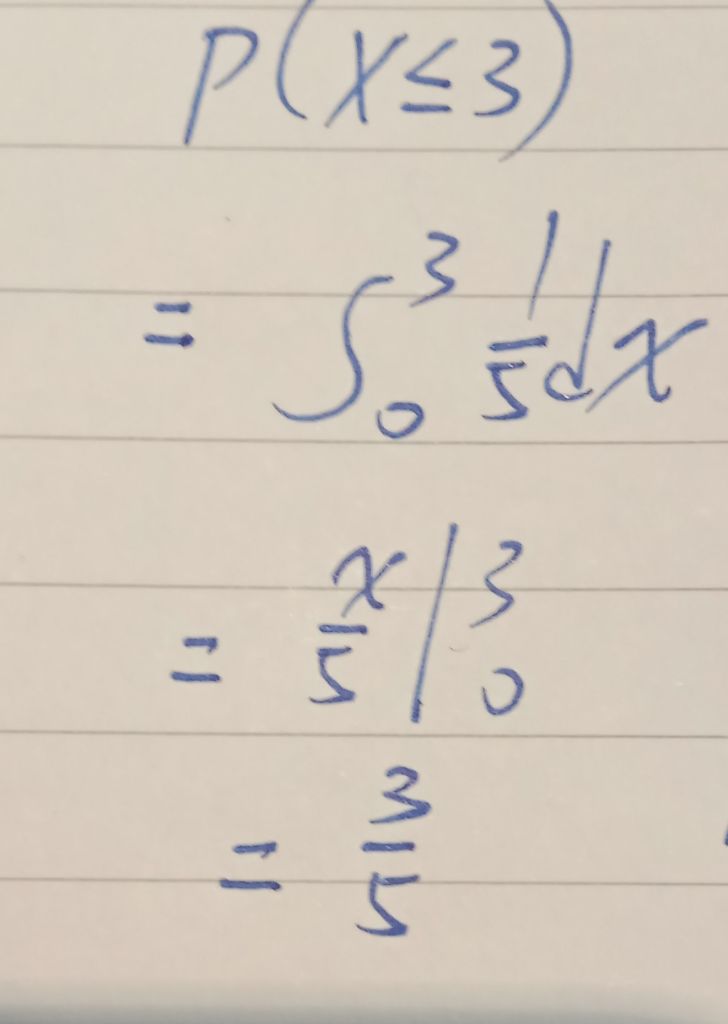 P(X≤3)
= ∫₀³ 1/5 dx
= x/5 |₀³
= 3/5